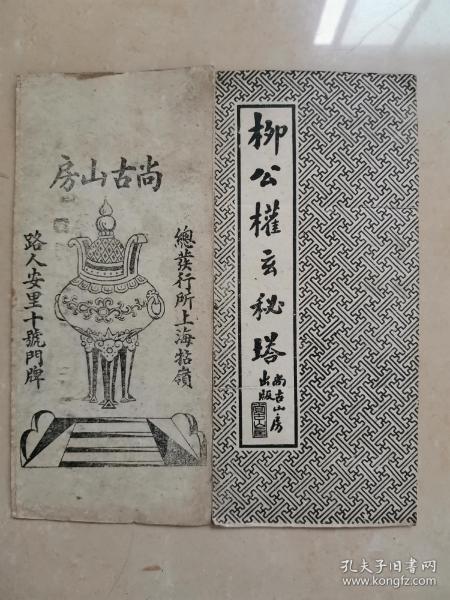 房山古尚
總發行所上海牯嶺
路人安里十號門牌
柳公權玄秘塔
尚古山房
出版
孔夫子旧书网
www.kongfz.com